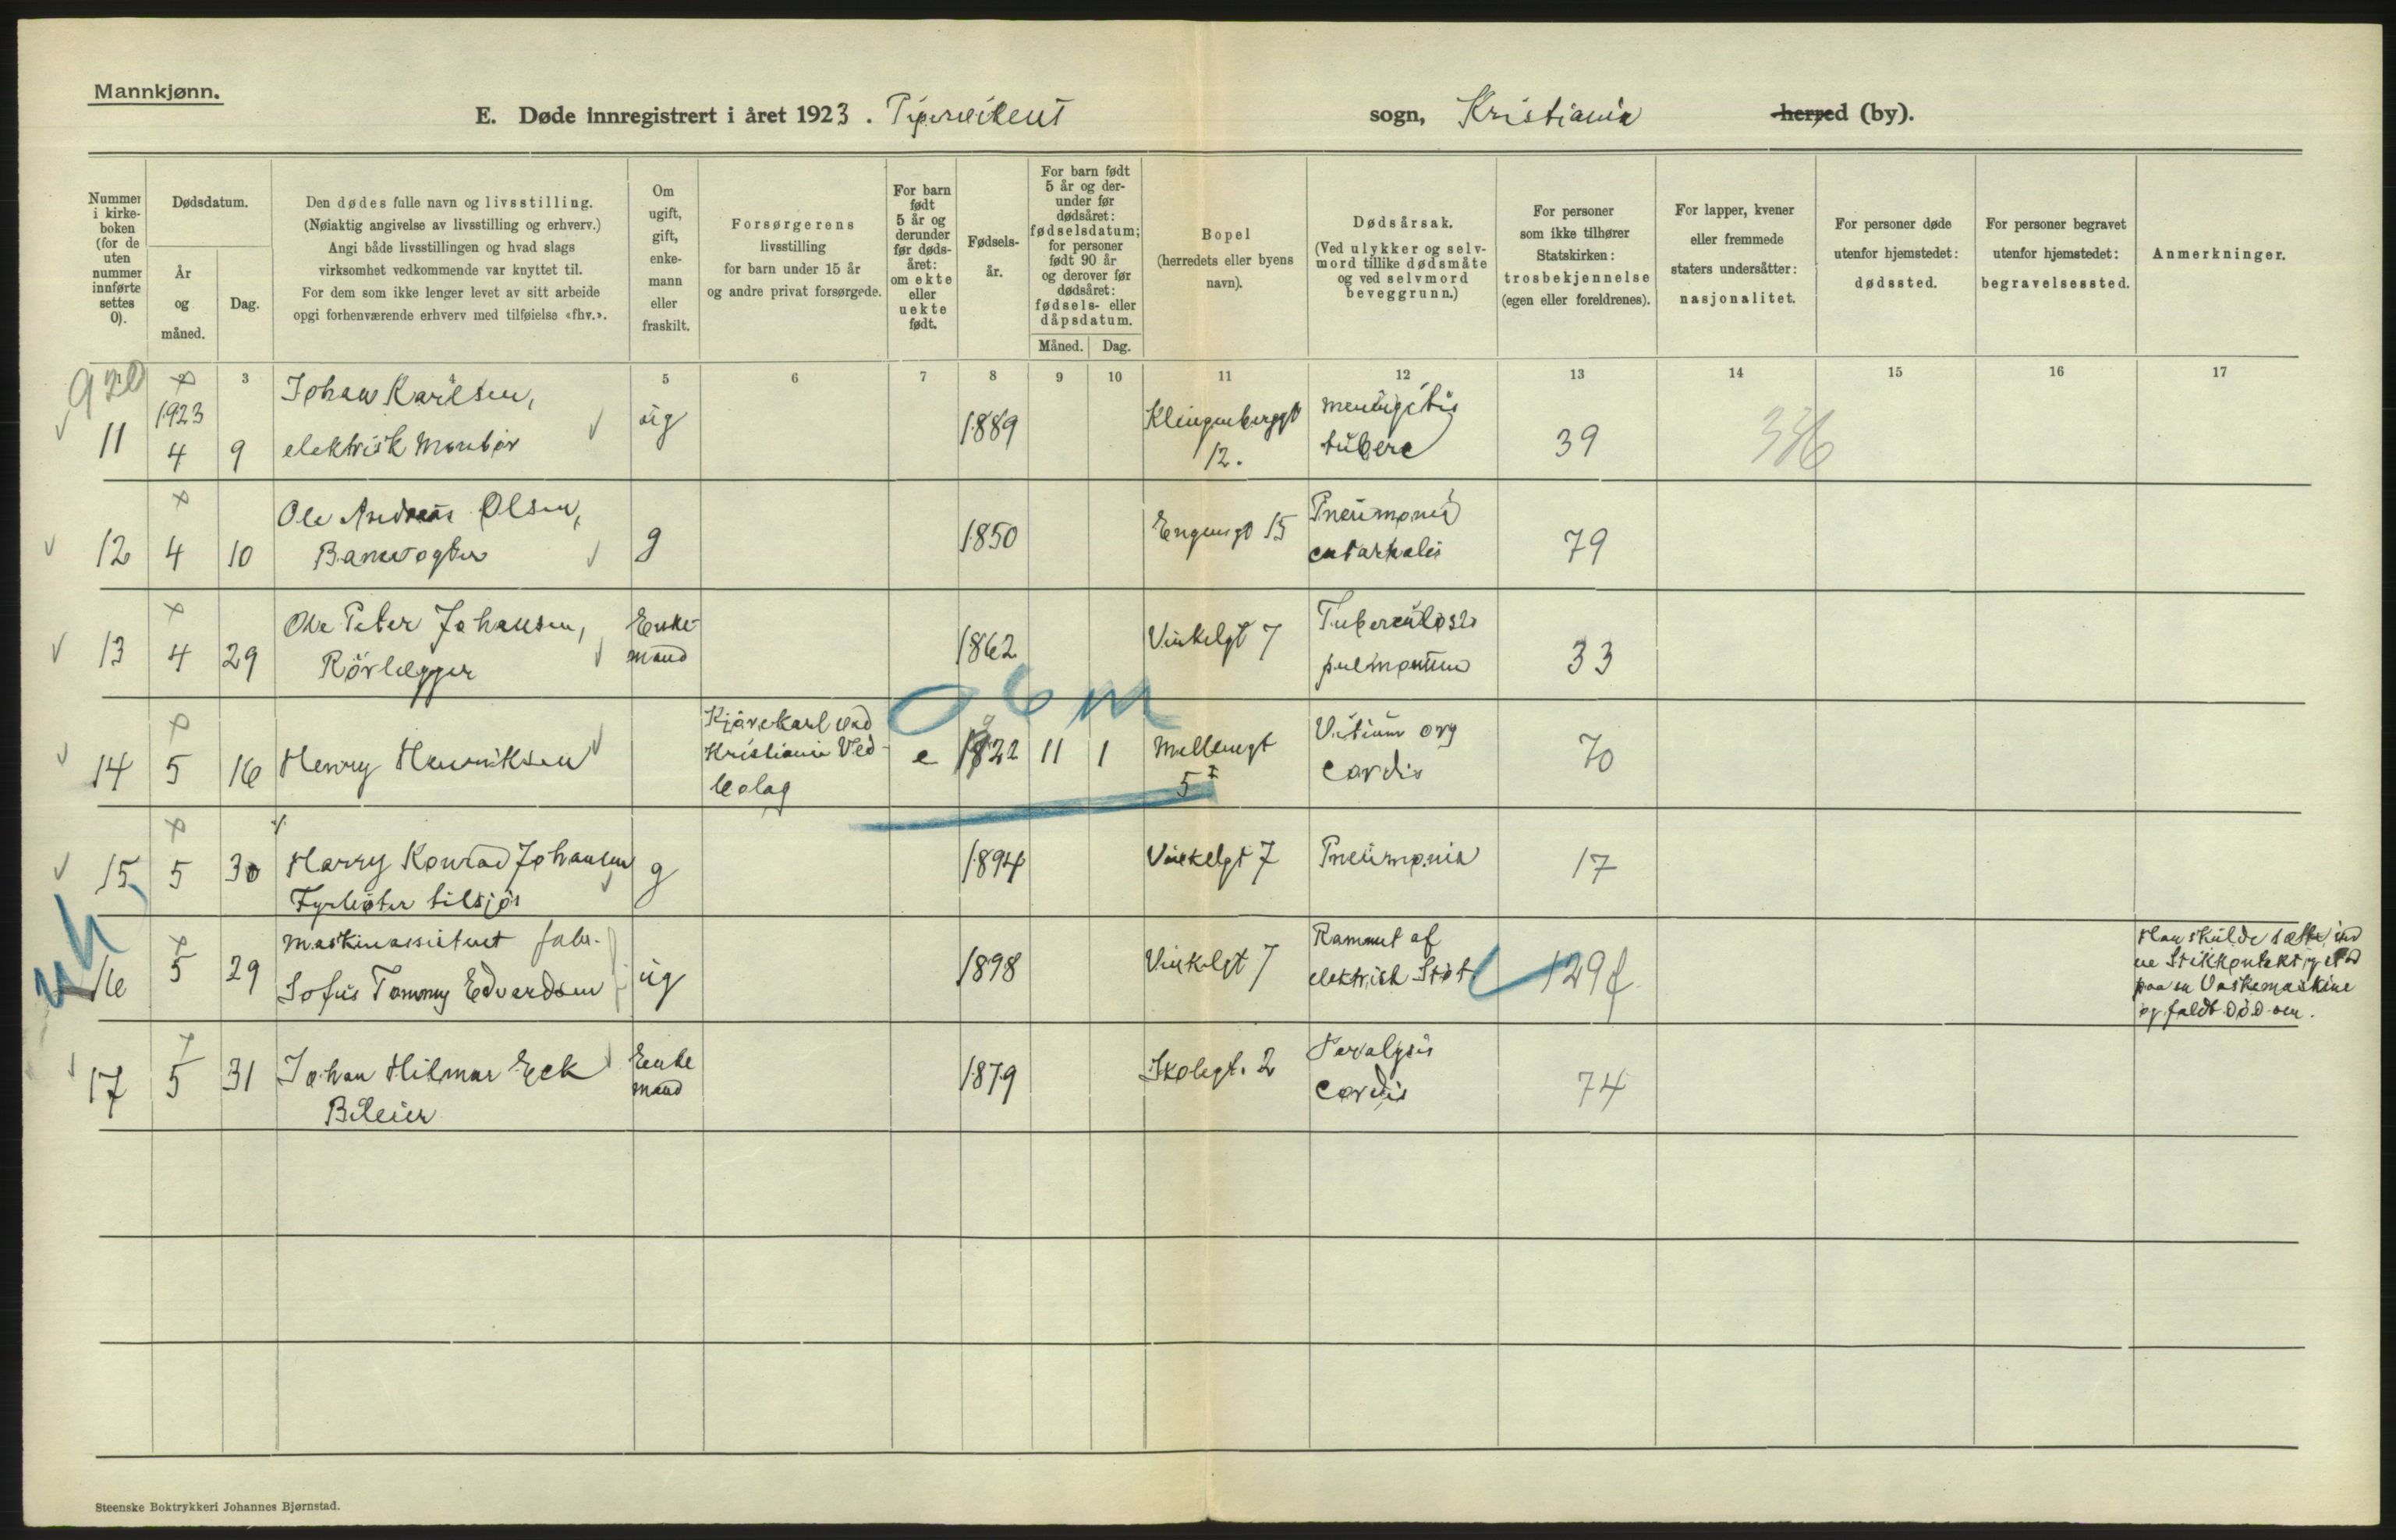 Mannkjønn.
E. Døde innregistrert i året 1923. Pipervikens sogn, Kristiania herred (by).
Nummer i kirke-boken (for de uten nummer innførte settes 0).
Dødsdatum.
År og måned.
Dag.
Den dødes fulle navn og livsstilling.
(Nøiaktig angivelse av livsstilling og erhverv.)
Angi både livsstillingen og hvad slags
virksomhet vedkommende var knyttet til.
For dem som ikke lenger levet av sitt arbeide
opgi forhenværende erhverv med tilføielse «fhv.».
Om ugift, gift, enke-mann eller fraskilt.
Forsørgerens
livsstilling
for barn under 15 år
og andre privat forsørgede.
For barn født 5 år og derunder før døds-året: om ekte eller uekte født.
Fødsels-år.
For barn født 5 år og der-under før dødsåret: fødselsdatum; for personer født 90 år og derover før dødsåret: fødsels- eller dåpsdatum.
Måned. Dag.
Bopel
(herredets eller byens
navn).
Dødsårsak.
(Ved ulykker og selv-
mord tillike dødsmåte
og ved selvmord
beveggrunn.)
For personer
som ikke tilhører
Statskirken:
trosbekjennelse
(egen eller foreldrenes).
For lapper, kvener
eller fremmede
staters undersåtter:
nasjonalitet.
For personer døde
utenfor hjemstedet:
dødssted.
For personer begravet
utenfor hjemstedet:
begravelsessted.
Anmerkninger.
3 4 5 6 7 8 9 10 11 12 13 14 15 16 17
920
11 1923 4 9 Johan Karlsen, elektrisk Montör ug 1889 Klingenberggt 12. meningitis tuberc 39 336
12 4 10 Ole Andreas Olsen, Banevogter g 1850 Engensgt 15 Pneumoni catarhalis 79
13 4 29 Ole Peter Johansen, Rörlægger Enke-mand 1862 Vinkelgt 7 Tuberculosis pulmonum 33
06m
14 5 16 Henry Henriksen Kjörekarl ved Kristiania Ved-bolag e 1922 11 1 Mellemgt 5 Vitium org Cordis 70
15 5 30 Harry Konrad Johansen Fyrböter tilsjös g 1894 Vinkelgt 7 Pneumonia 17
uh.
16 5 29 Maskinassistent Sofus Tommy Edvardsen ug 1898 Vinkelgt 7 Rammet af elektrisk Støt 129f
Han skulde sætte ind
en Stikkontakt
paa en Vaskemaskine
og faldt död om.
17 5 31 Johan Hilmar Eek Bileier Enke mand 1879 Skolegt. 2 Paralysis Cordis 74
Steenske Boktrykkeri Johannes Bjørnstad.